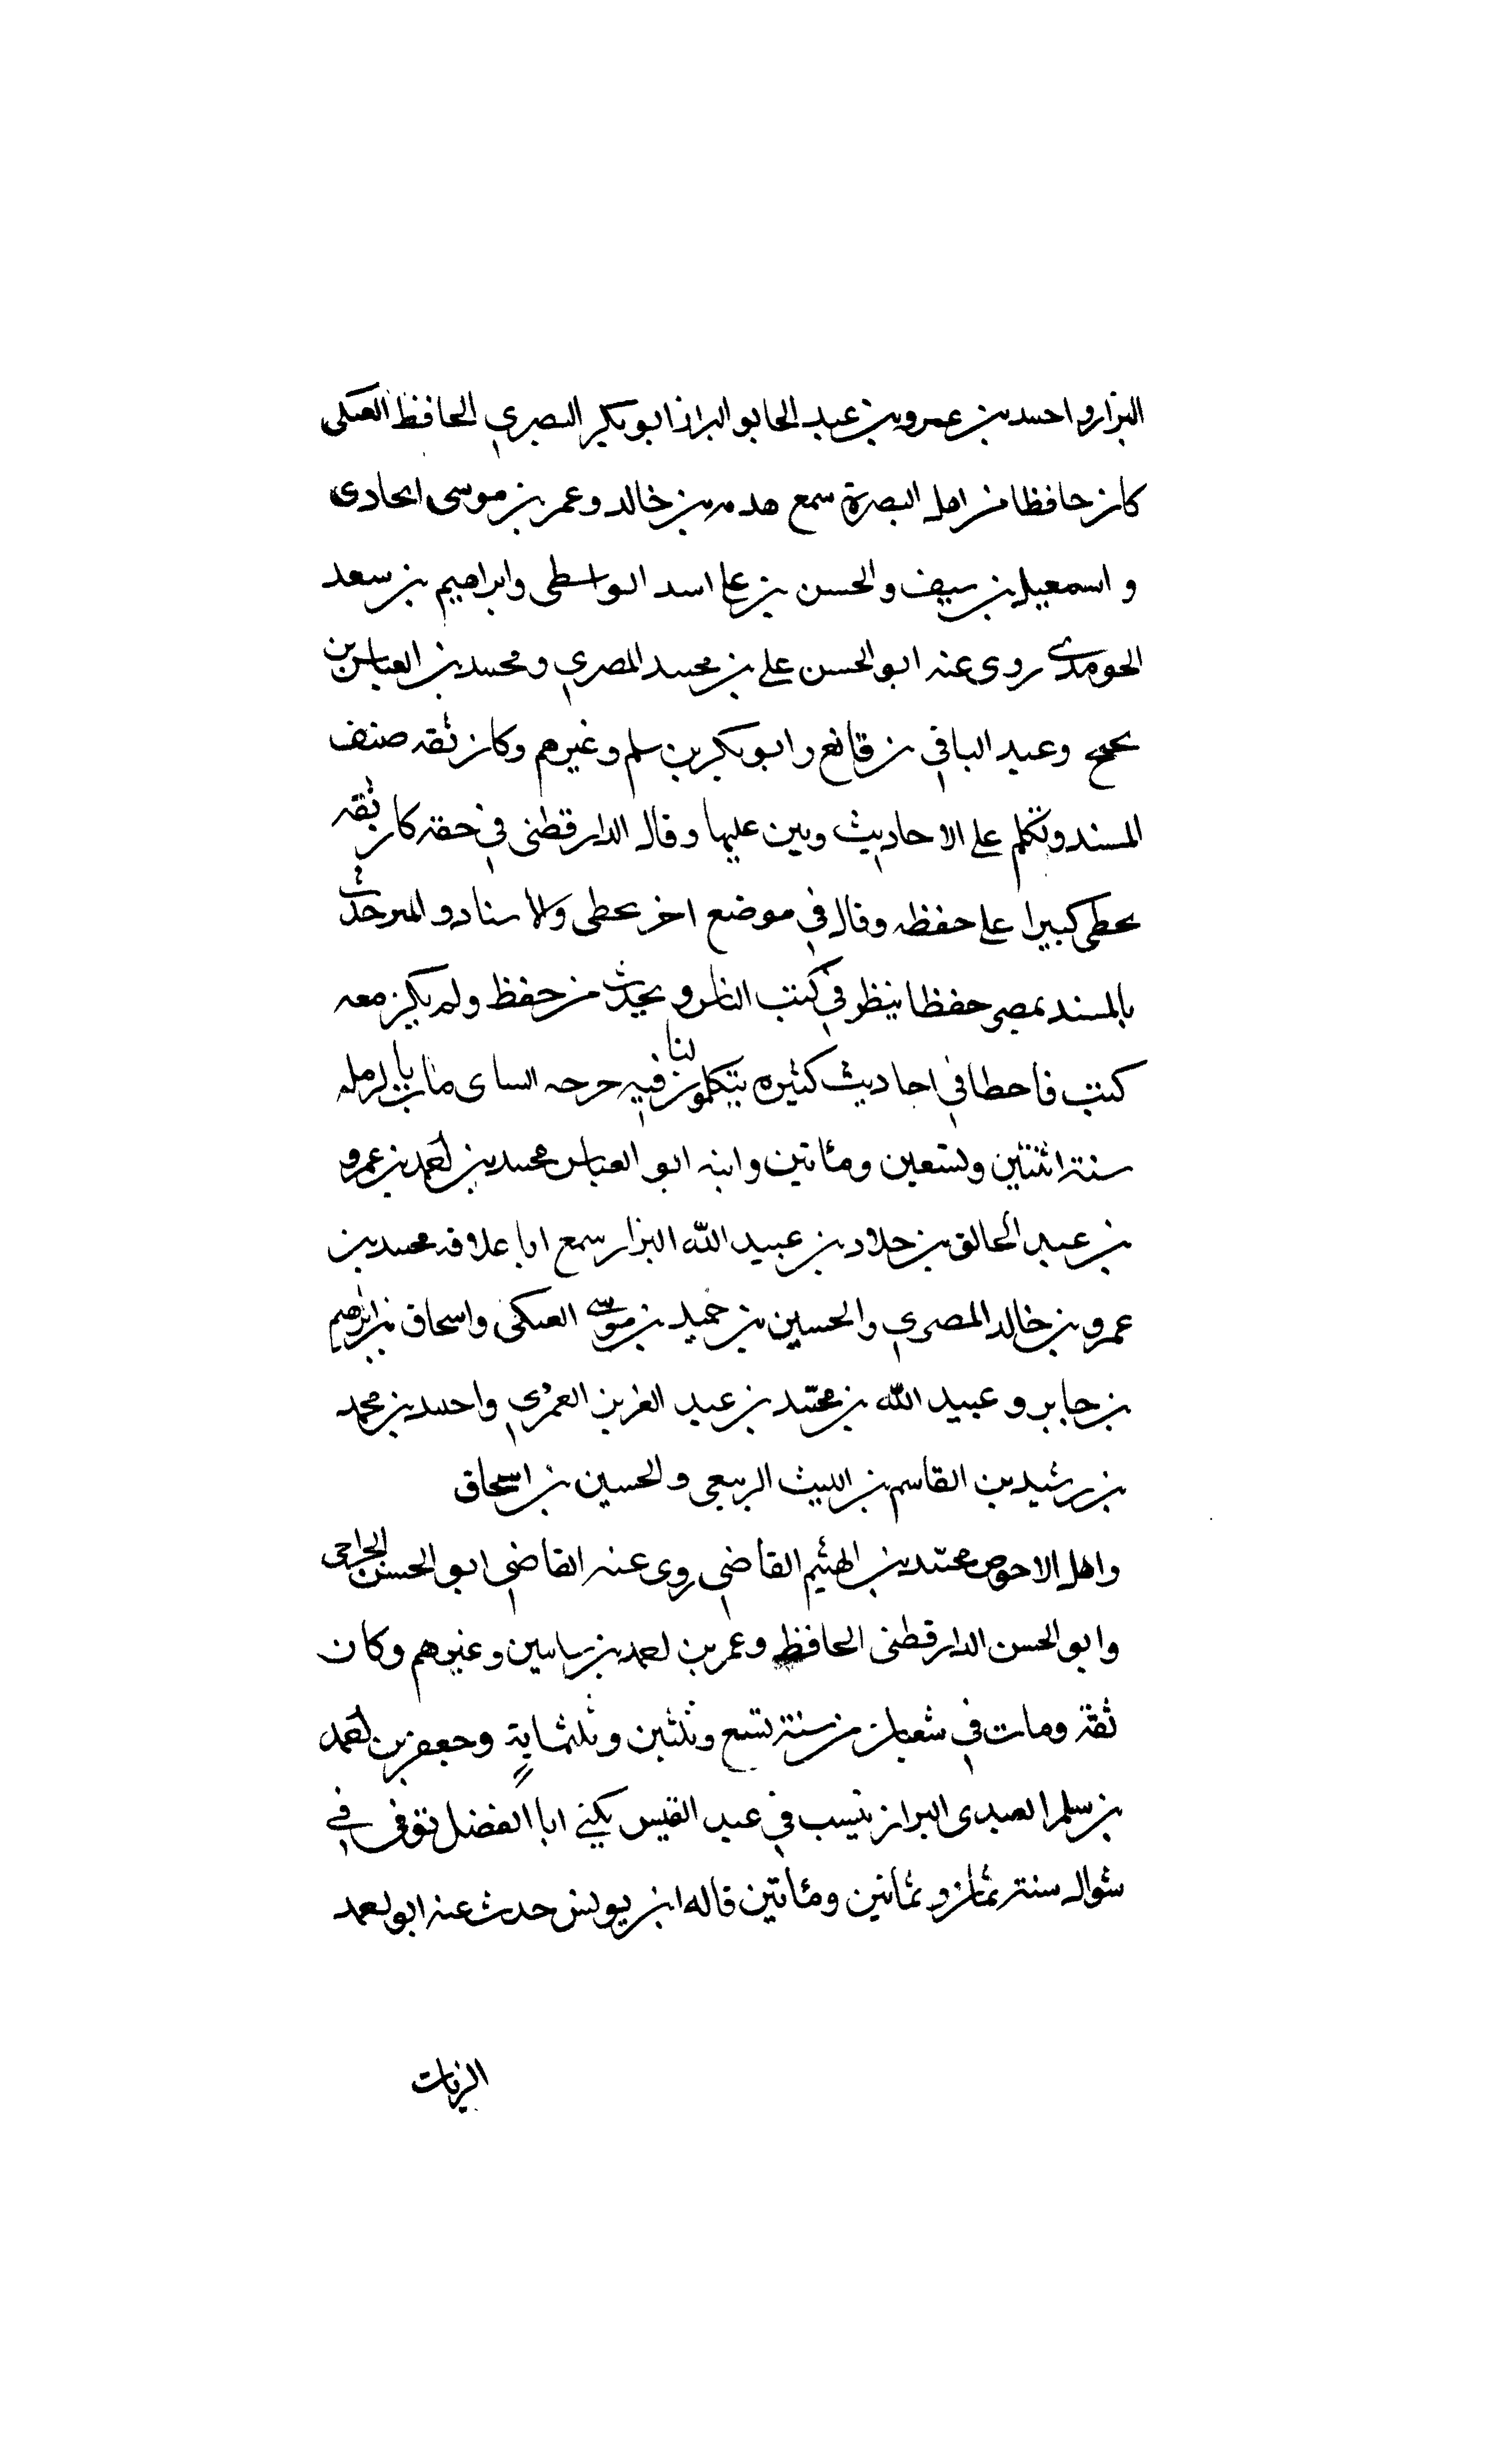 البزار واحمد بن عمرو بن عبد الخالق البزاز ابو بكر البصري الحافظ العتكى
كان حافظا من اهل البصرة سمع هدبه بن خالد وعمر بن موسى الحادى
و اسمعيل بن سيف والحسن بن على اسد الواسطى وابراهيم بن سعد
الجوهدى روى عنه ابو الحسن على بن محمد المصري ومحمد بن العباس بن
نجح وعبد الباقي بن قانع وابو بكر بن سلم وغيرهم وكان ثقه صنف
المسند وتكلم على الاحاديث وبين عليها وقال الدارقطنى في حقه كان ثقه
يخطى كبيرا على حفظه وقال في موضع اخر يخطى والاسناد و المتن حدث
بالمسند بمصر حفظا ينظر في كتب الناس و يحدث من حفظ ولم يكن معه
كتب فاخطا في احاديث كثيره يتكلمون فيه جرحه النساى لنا مات بالرمله
سنة اثنتين وتسعين ومئاتين وابنه ابو العباس محمد بن احمد بن عمرو
بن عبد الخالق بن خلاد بن عبيد الله البزار سمع ابا علاقه محمد بن
عمرو بن خالد المصري والحسين بن حميد بن موسى العتكى واسحاق بن ابراهيم
بن جابر و عبيد الله بن محمد بن عبد العزيز العمري واحمد بن محمد
بن رشيد بن القاسم بن الليث الربيعى والحسين بن اسحاق
واهل الاحوص محمد بن الهيثم القاضي روى عنه القاضي ابو الحسن الجراحى
وابو الحسن الدارقطنى الحافظ وعمر بن احمد بن شاهين وغيرهم وكان
ثقة ومات في شعبان من سنة تسع وثلثين وثلثماية وجعفر بن احمد
بن سلم العبدى البزاز ينسب في عبد القيس يكنى ابا الفضل توفى في
شوال سنة ثمان و ثمانين ومئاتين قاله ابن يونس حدث عنه ابو احمد
الزيات